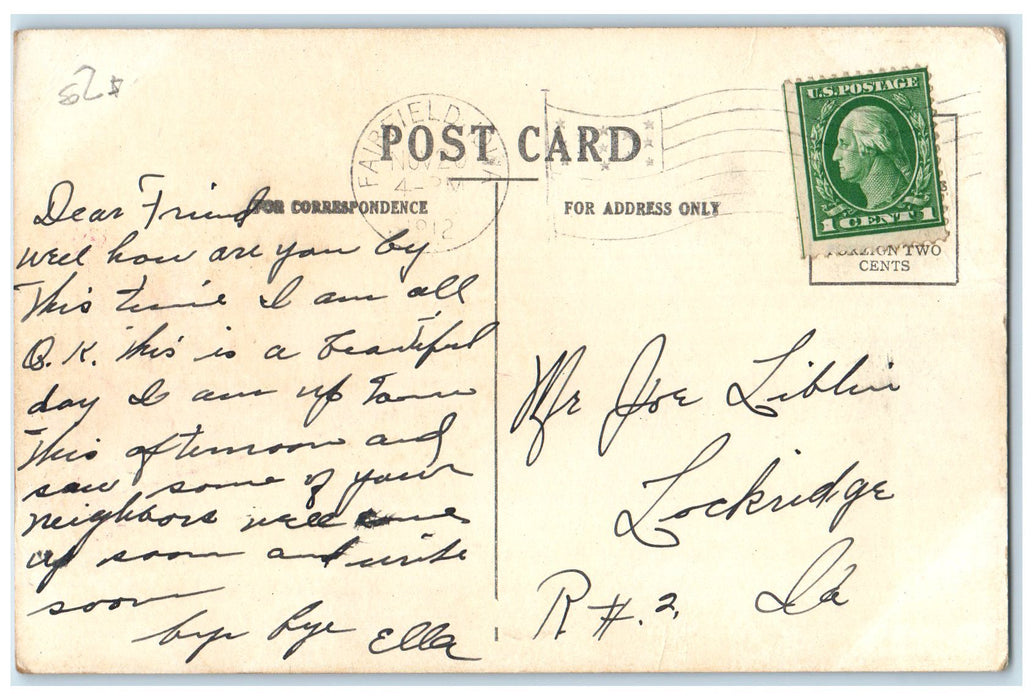 52$
U.S. POSTAGE
1 CENT 1
FOREIGN TWO
CENTS
FAIRFIELD, IOWA
NOV 20
4-PM
1912
POST CARD
FOR CORRESPONDENCE
FOR ADDRESS ONLY
Dear Friend
well how are you by
this time I am all
O.K. this is a beautiful
day I am up town
this afternoon and
saw some of your
neighbors well come
up soon and write
soon
bye bye Ella
Mr Joe Liblin
Lockridge
R #. 2. Ia